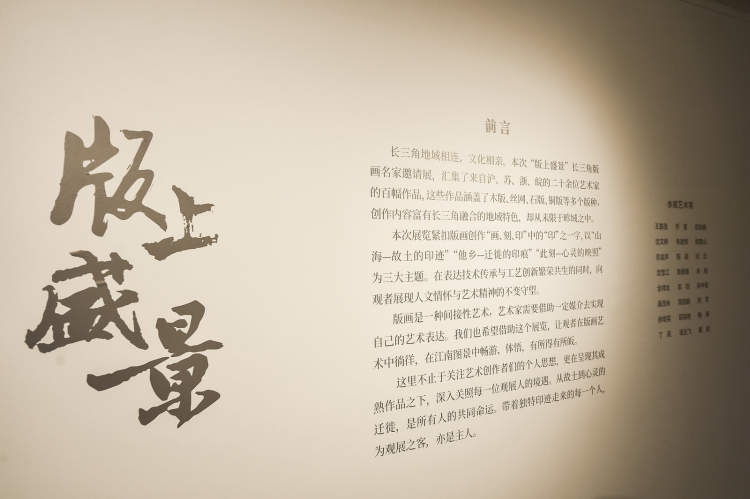 版上
盛景
前言
长三角地域相连，文化相亲。本次“版上盛景”长三角版
画名家邀请展，汇集了来自沪、苏、浙、皖的二十余位艺术家
的百幅作品，这些作品涵盖了木版、丝网、石版、铜版等多个版种，
创作内容富有长三角融合的地域特色，却从未限于畛域之中。
本次展览紧扣版画创作“画、刻、印”中的“印”之一字，以“山
海—故土的印迹”“他乡—迁徙的印痕”“此刻—心灵的映照”
为三大主题。在表达技术传承与工艺创新繁荣共生的同时，向
观者展现人文情怀与艺术精神的不变守望。
版画是一种间接性艺术，艺术家需要借助一定媒介去实现
自己的艺术表达。我们也希望借助这个展览，让观者在版画艺
术中徜徉，在江南图景中畅游、体悟，有所得有所皈。
这里不止于关注艺术创作者们的个人思想，更在呈现其成
熟作品之下，深入关照每一位观展人的境遇。从故土到心灵的
迁徙，是所有人的共同命运。带着独特印迹走来的每一个人，
为观展之客，亦是主人。
参展艺术家